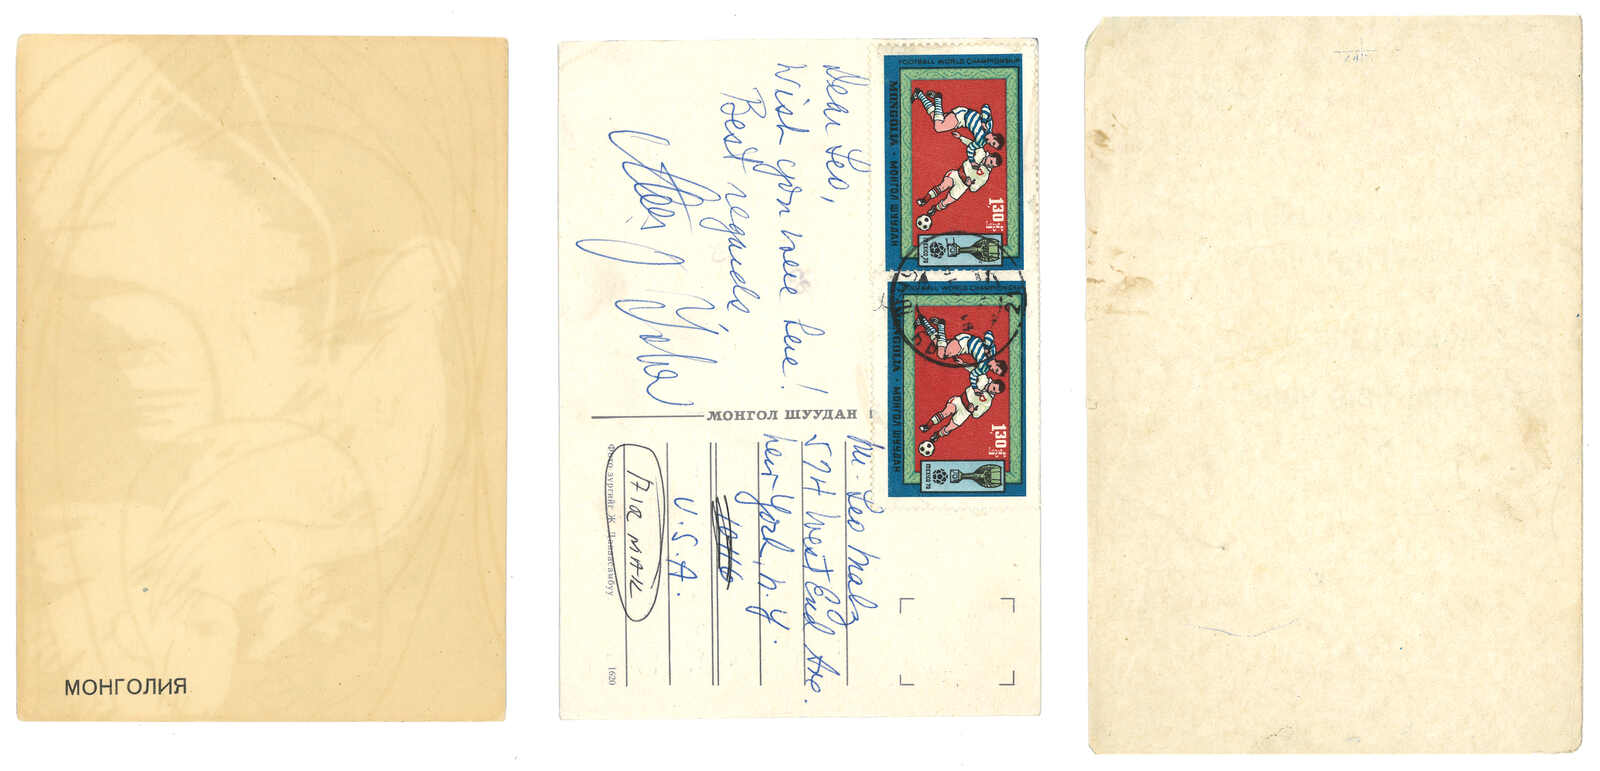 МОНГОЛИЯ
Dear Leo,
Wish you were here!
Best regards
МОНГОЛ ШУУДАН
Mr. Leo Malz
574 West End Ave.
New York, N.Y.
U.S.A.
AIR MAIL
Фото зургийг Ж. Цэвээсамбуу
1620
FOOTBALL WORLD CHAMPIONSHIP
MONGOLIA · МОНГОЛ ШУУДАН
1.30
MEXICO 70
FOOTBALL WORLD CHAMPIONSHIP
MONGOLIA · МОНГОЛ ШУУДАН
1.30
MEXICO 70